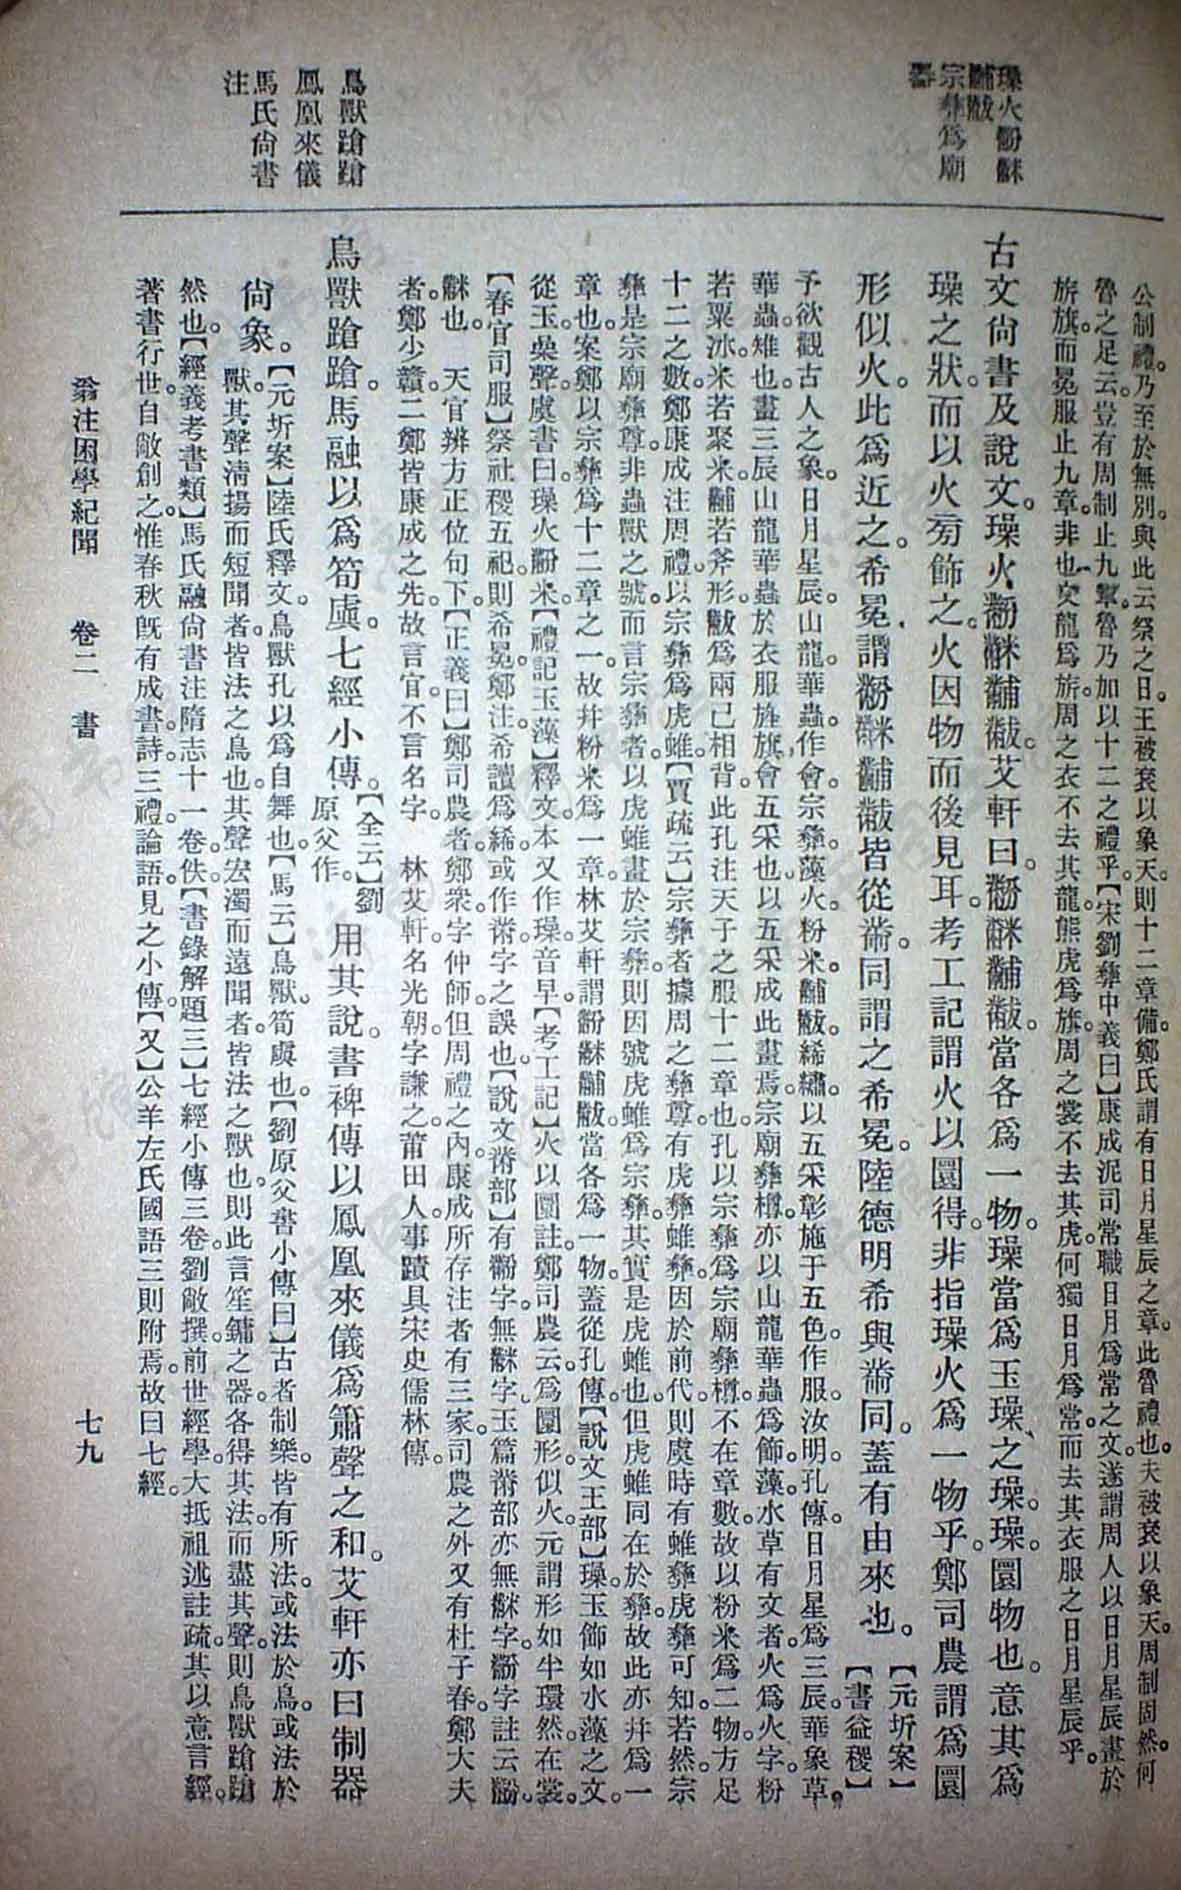 璪火黺䋛
黼黻
宗彝爲廟
器
鳥獸蹌蹌
鳳凰來儀
馬氏尙書
注
公制禮。乃至於無別。與此云祭之日。王被袞以象天。則十二章備。鄭氏謂有日月星辰之章。此魯禮也。夫被袞以象天。周制固然。何
魯之足云。豈有周制止九章。魯乃加以十二之禮乎。【宋劉彝中義曰】康成泥司常職日月爲常之文。遂謂周人以日月星辰畫於
旂旗。而冕服止九章。非也。交龍爲旂。周之衣不去其龍。熊虎爲旗。周之裳不去其虎。何獨日月爲常。而去其衣服之日月星辰乎。
古文尙書及說文。璪火黺䋛黼黻。艾軒曰。黺䋛黼黻。當各爲一物。璪當爲玉璪之璪。璪圜物也。意其爲
璪之狀。而以火旁飾之。火因物而後見耳。考工記謂火以圜得。非指璪火爲一物乎。鄭司農謂爲圜
形似火。此爲近之。希冕。謂黺䋛黼黻皆從黹。同謂之希冕。陸德明希與黹同。蓋有由來也。【元圻案】【書益稷】
予欲觀古人之象。日月星辰。山龍華蟲。作會。宗彝。藻火粉米。黼黻絺繡。以五采彰施于五色。作服。汝明。孔傳。日月星爲三辰。華象草。
華蟲。雉也。畫三辰山龍華蟲於衣服旌旗。會五采也。以五采成此畫焉。宗廟彝樽。亦以山龍華蟲爲飾。藻水草有文者。火爲火字。粉
若粟冰。米若聚米。黼若斧形。黻爲兩己相背。此孔注天子之服十二章也。孔以宗彝爲宗廟彝樽。不在章數。故以粉米爲二物。方足
十二之數。鄭康成注周禮。以宗彝爲虎蜼。【賈疏云】宗彝者。據周之彝尊。有虎彝蜼彝。因於前代。則虞時有蜼彝虎彝可知。若然。宗
彝是宗廟彝尊。非蟲獸之號。而言宗彝者。以虎蜼畫於宗彝。則因號虎蜼爲宗彝。其實是虎蜼也。但虎蜼同在於彝。故此亦幷爲一
章也。案鄭以宗彝爲十二章之一。故幷粉米爲一章。林艾軒謂黺䋛黼黻。當各爲一物。蓋從孔傳。【說文玉部】璪。玉飾如水藻之文。
從玉。喿聲。虞書曰。璪火黺米。【禮記玉藻】釋文。本又作璪。音早。【考工記】火以圜註。鄭司農云。爲圜形。似火。元謂形如半環然。在裳。
【春官司服】祭社稷五祀。則希冕。鄭注。希讀爲絺。或作黹。字之誤也。【說文黹部】有黺字。無䋛字。玉篇黹部亦無䋛字。黺字註云。黺
䋛也。　天官辨方正位句下。【正義曰】鄭司農者。鄭衆。字仲師。但周禮之內。康成所存注者有三家。司農之外。又有杜子春。鄭大夫
者。鄭少贛。二鄭皆康成之先。故言官。不言名字。　林艾軒。名光朝。字謙之。莆田人。事蹟具宋史儒林傳。
鳥獸蹌蹌。馬融以爲筍虡。七經小傳。【全云】劉原父作。用其說。書裨傳以鳳凰來儀爲簫聲之和。艾軒亦曰制器
尙象。【元圻案】陸氏釋文。鳥獸。孔以爲自舞也。【馬云】鳥獸。筍虡也。【劉原父書小傳曰】古者制樂。皆有所法。或法於鳥。或法於
獸。其聲淸揚而短聞者。皆法之鳥也。其聲宏濁而遠聞者。皆法之獸也。則此言笙鏞之器。各得其法。而盡其聲。則鳥獸蹌蹌
然也。【經義考書類】馬氏融尙書注。隋志十一卷。佚。【書錄解題三】七經小傳三卷。劉敞撰。前世經學。大抵祖述註疏。其以意言經。
著書行世。自敞創之。惟春秋旣有成書。詩。三禮。論語。見之小傳。【又】公羊左氏國語三則附焉。故曰七經。
翁注困學紀聞　卷二　書　七九